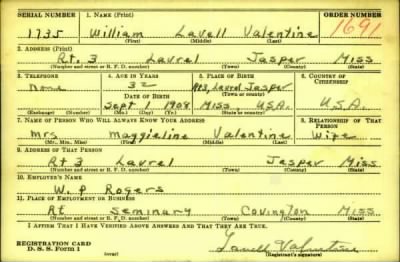 SERIAL NUMBER 1. NAME (Print) ORDER NUMBER
1735 William Lavell Valentine 1691
(First) (Middle) (Last)
2. ADDRESS (Print)
Rt. 3 Laurel Jasper Miss
(Number and street or R. F. D. number) (Town) (County) (State)
3. TELEPHONE 4. AGE IN YEARS 5. PLACE OF BIRTH 6. COUNTRY OF CITIZENSHIP
None 32 Rt3, Laurel Jasper
DATE OF BIRTH (Town or county)
Sept 1 1908 Miss. U.S.A. U.S.A.
(Exchange) (Number) (Mo.) (Day) (Yr.) (State or country)
7. NAME OF PERSON WHO WILL ALWAYS KNOW YOUR ADDRESS 8. RELATIONSHIP OF THAT PERSON
Mrs Maggieline Valentine Wife
(Mr., Mrs., Miss) (First) (Middle) (Last)
9. ADDRESS OF THAT PERSON
Rt 3 Laurel Jasper Miss
(Number and street or R. F. D. number) (Town) (County) (State)
10. EMPLOYER'S NAME
W. P Rogers
11. PLACE OF EMPLOYMENT OR BUSINESS
Rt Seminary Covington Miss
(Number and street or R. F. D. number) (Town) (County) (State)
I AFFIRM THAT I HAVE VERIFIED ABOVE ANSWERS AND THAT THEY ARE TRUE.
REGISTRATION CARD
D. S. S. Form 1 Lavell Valentine
(over) (Registrant's signature)